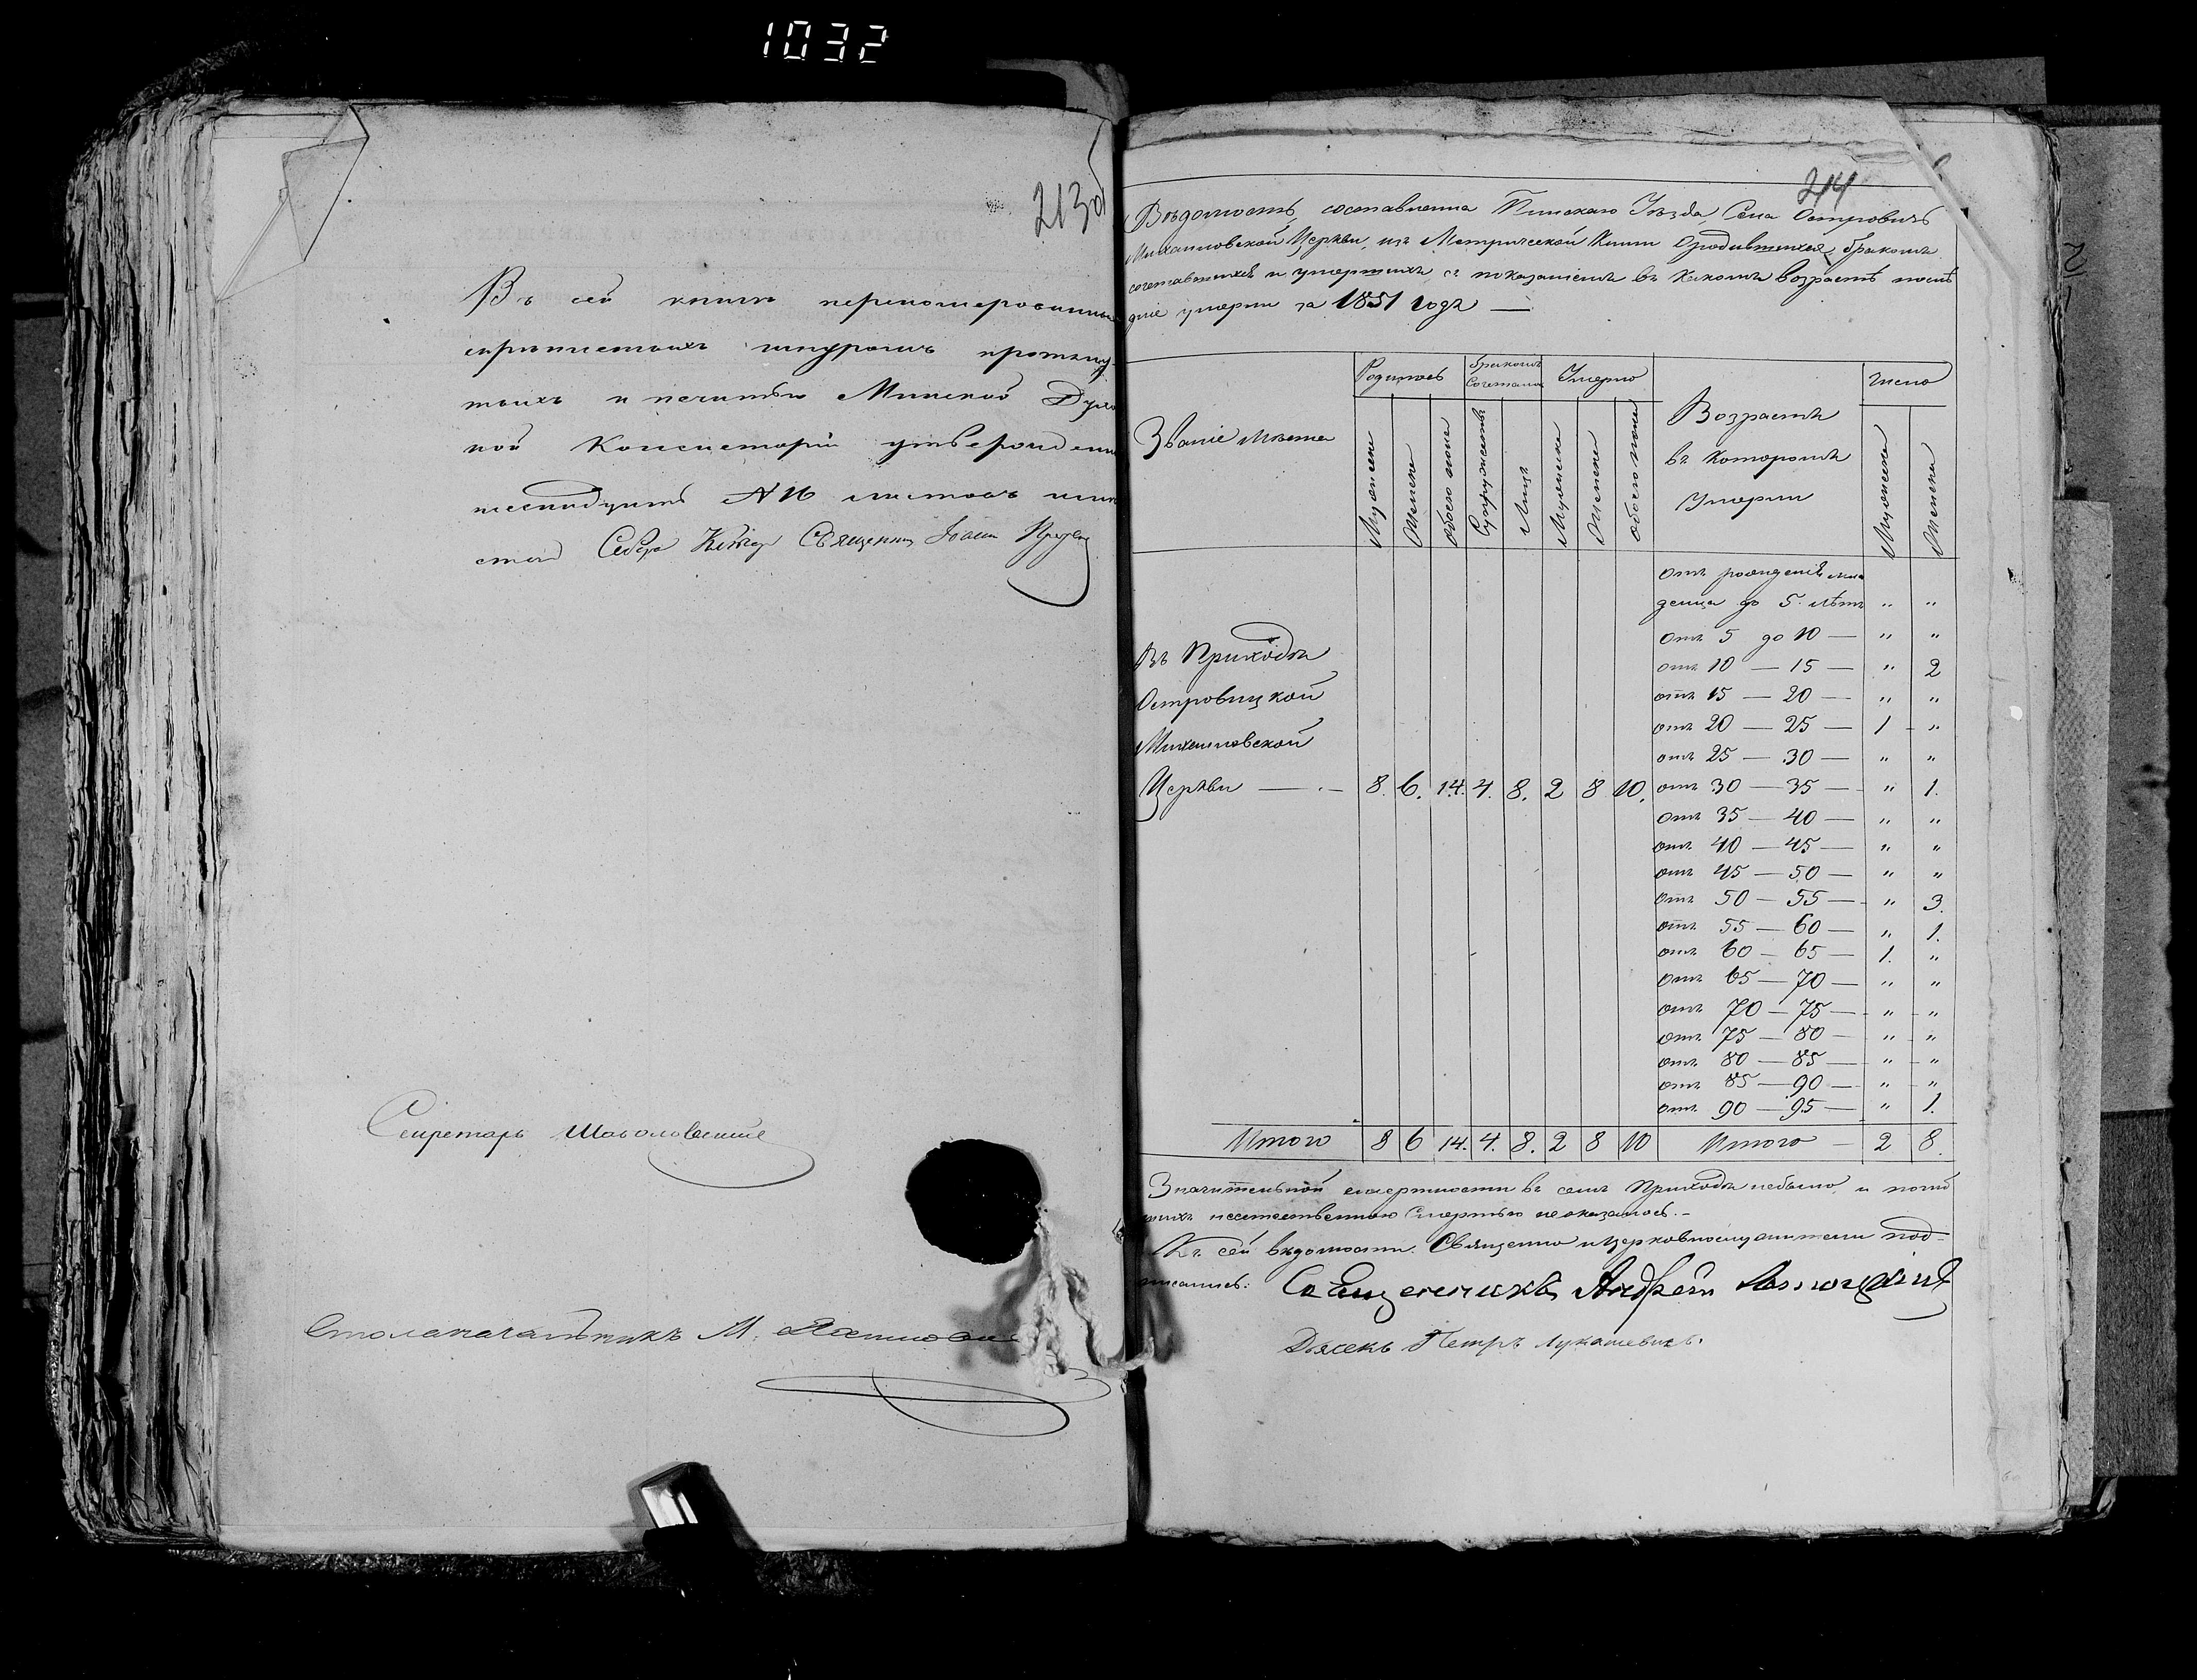 1032
213 об
Въ сей книгѣ перенумерованныхъ
скрѣпленныхъ шнуромъ протяну-
тыхъ и печатью Минской Духов
ной Консисторіи утвержден
№ 16 листовъ
Священникъ Іоаннъ
Секретарь
Столоначальникъ М.
214
Вѣдомость, составленна Пинскаго Уѣзда, Села Островичъ
Михаиловской Церкви, изъ Метрической Книги о родившихся, бракомъ
сочетавшихся и умершихъ съ показаніемъ въ какомъ возрастѣ послѣ
дніе умерли за 1851 годъ —
Званіе мѣста
Родилось
Бракомъ Сочетано
Умерло
Возрастъ
въ которомъ
Умерли
Число
Мужеска
Женска
Обоего пола
Супружествъ
Лицъ
Мужеска
Женска
Обоего пола
Мужеска
Женска
отъ рожденія мла
денца до 5. лѣтъ " "
отъ 5 до 10 — " "
отъ 10 — 15 — " 2
отъ 15 — 20 — " "
отъ 20 — 25 — 1 "
отъ 25 — 30 — " "
Въ Приходѣ
Островицкой
Михаиловской
Церкви — 8. 6. 14. 4. 8. 2 8 10. отъ 30 — 35 — " 1.
отъ 35 — 40 — " "
отъ 40 — 45 — " "
отъ 45 — 50 — " "
отъ 50 — 55 — " 3.
отъ 55 — 60 — " 1.
отъ 60 — 65 — 1. "
отъ 65 — 70 — " "
отъ 70 — 75 — " "
отъ 75 — 80 — " "
отъ 80 — 85 — " "
отъ 85 — 90 — " "
отъ 90 — 95 — " 1.
Итого 8 6 14. 4. 8. 2 8 10 Итого — 2 8.
Значительной смертности въ семъ Приходѣ небыло, и погиб
шихъ неестественною Смертью неоказалось. —
Къ сей вѣдомости. Священно и церковнослужители под-
писались: Священникъ Андрей
Дьячекъ Петръ Лукашевичъ.